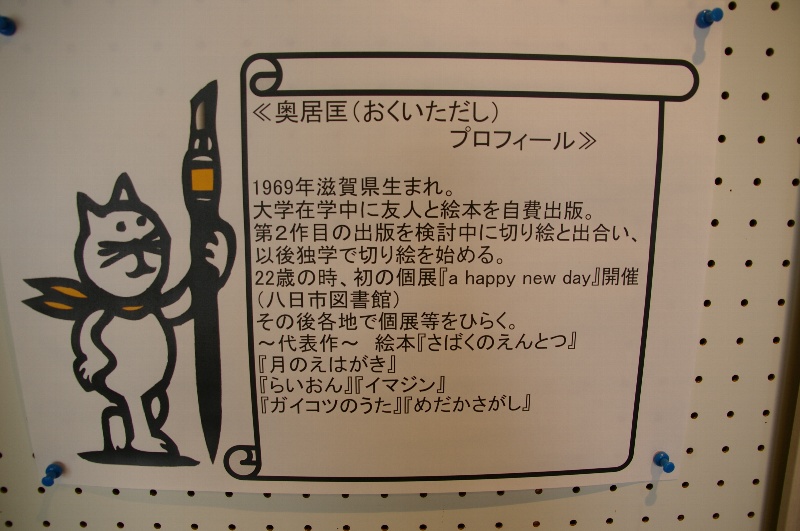 ≪奥居匡(おくいただし)
プロフィール≫
1969年滋賀県生まれ。
大学在学中に友人と絵本を自費出版。
第2作目の出版を検討中に切り絵と出合い、
以後独学で切り絵を始める。
22歳の時、初の個展『a happy new day』開催
(八日市図書館)
その後各地で個展等をひらく。
～代表作～ 絵本『さばくのえんとつ』
『月のえはがき』
『らいおん』『イマジン』
『ガイコツのうた』『めだかさがし』